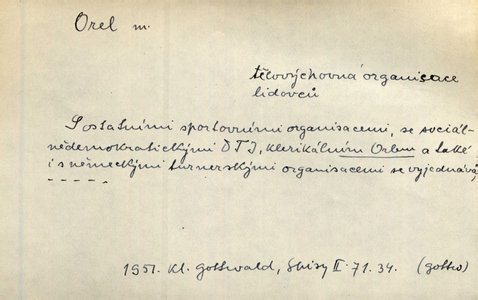 Orel m.
tělovýchovná organisace
lidovců
S ostatními sportovními organisacemi, se sociál-
nědemokratickými DTJ, klerikálním Orlem a také
i s německými turnerskými organisacemi se vyjednává,
- - - - -
1951. Kl. Gottwald, Spisy II. 71. 34. (gottw)